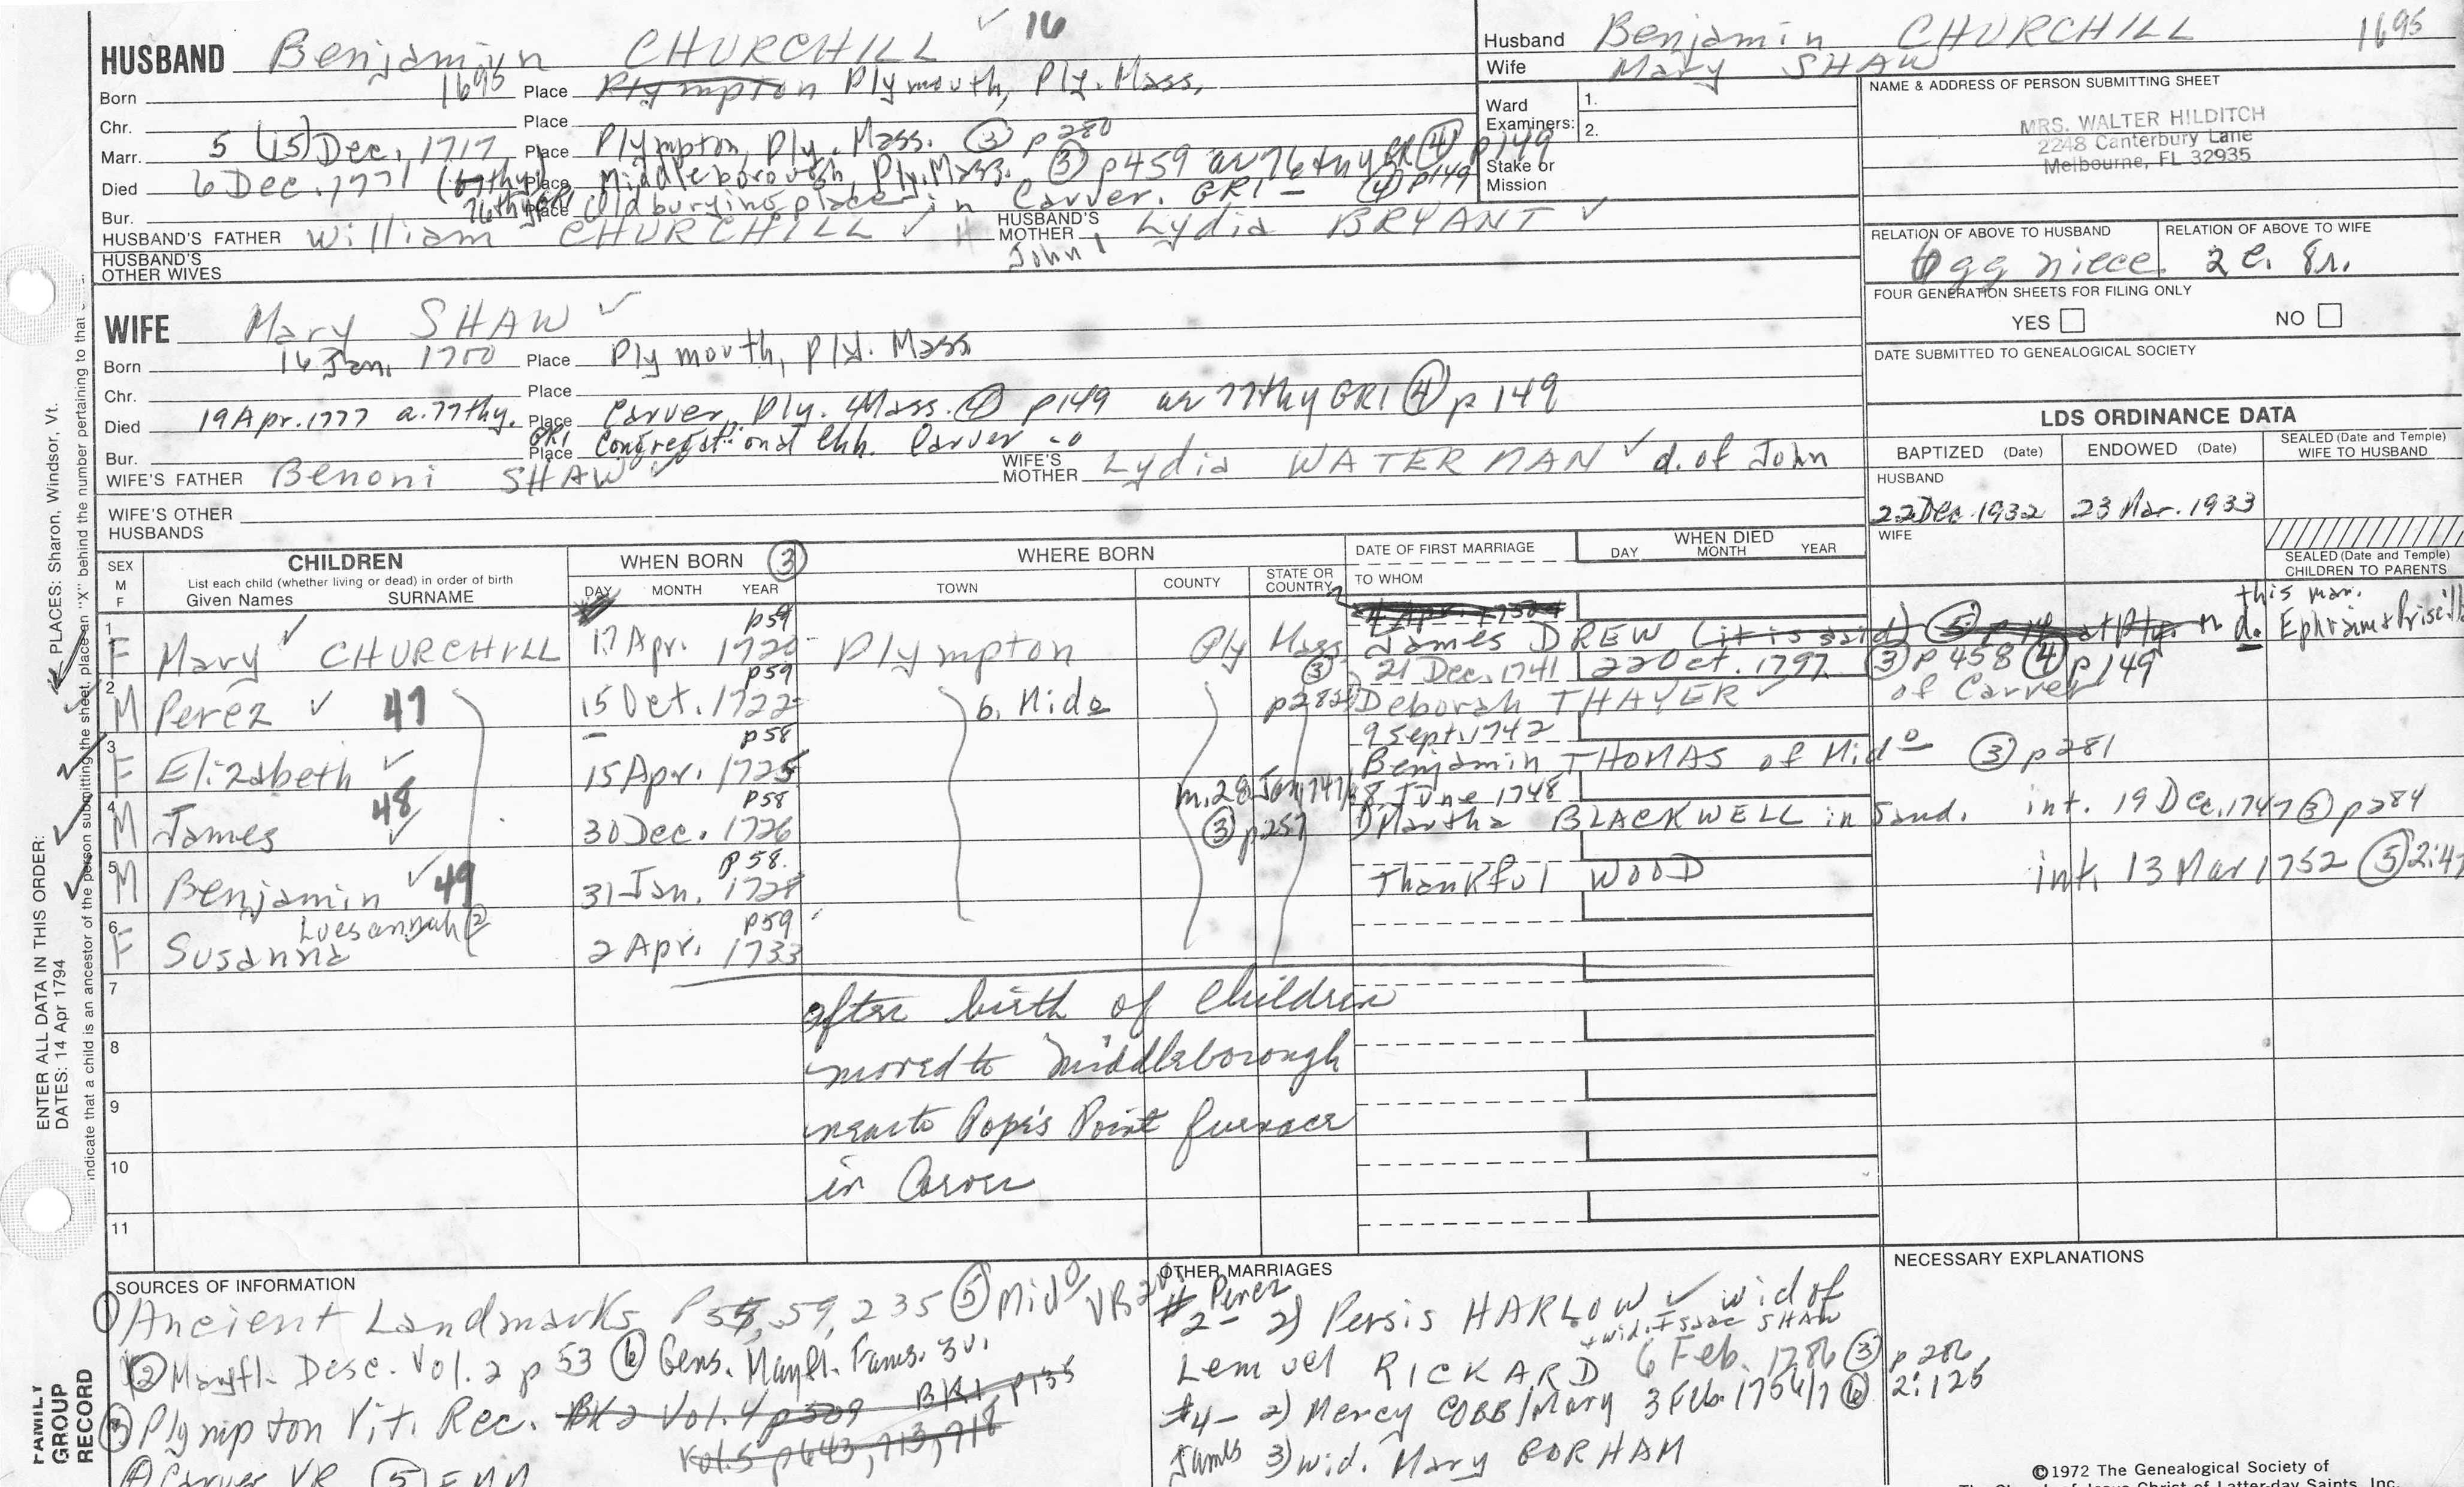 HUSBAND Benjamin CHURCHILL ✓ 16
Born 1695 Place Plympton Plymouth, Ply. Mass,
Chr. Place
Marr. 5 (15) Dec, 1717 Place Plympton, Ply. Mass. ③ p280
Died 6 Dec. 1771 (67thy) Place Middleborough, Ply. Mass. ③ p459 ④ p149
Bur. 76thy GR1 Place Old burying place in Carver. GR1 - ④ p149
HUSBAND'S FATHER William CHURCHILL ✓ HUSBAND'S MOTHER Lydia BRYANT ✓
John
HUSBAND'S OTHER WIVES
Husband Benjamin CHURCHILL 1695
Wife Mary SHAW
Ward Examiners: 1.
2.
Stake or Mission
NAME & ADDRESS OF PERSON SUBMITTING SHEET
MRS. WALTER HILDITCH
2248 Canterbury Lane
Melbourne, FL 32935
RELATION OF ABOVE TO HUSBAND RELATION OF ABOVE TO WIFE
6gg niece 2c. 8r.
FOUR GENERATION SHEETS FOR FILING ONLY
YES NO
DATE SUBMITTED TO GENEALOGICAL SOCIETY
WIFE Mary SHAW ✓
Born 16 Jan. 1700 Place Plymouth, Ply. Mass
Chr. Place
Died 19 Apr. 1777 a. 77thy. Place Carver, Ply. Mass. ④ p149 77thy GR1 ④ p149
Bur. GR1 Place Congregational Chh. Carver
WIFE'S FATHER Benoni SHAW ✓ WIFE'S MOTHER Lydia WATERMAN ✓ d. of John
WIFE'S OTHER HUSBANDS
LDS ORDINANCE DATA
BAPTIZED (Date) ENDOWED (Date) SEALED (Date and Temple) WIFE TO HUSBAND
HUSBAND
22 Dec 1932 23 Mar. 1933
WIFE
SEALED (Date and Temple) CHILDREN TO PARENTS
SEX M F
CHILDREN
List each child (whether living or dead) in order of birth
Given Names SURNAME
WHEN BORN ③
DAY MONTH YEAR
WHERE BORN
TOWN COUNTY STATE OR COUNTRY
DATE OF FIRST MARRIAGE
TO WHOM
WHEN DIED
DAY MONTH YEAR
this mar.
1 F Mary ✓ CHURCHILL p59 17 Apr. 1720 Plympton Ply Mass James DREW (it is said) ⑤ d. Ephraim & Priscilla
2 M Perez ✓ 47 p59 15 Oct. 1722 b. Mido ③ p282 21 Dec. 1741 22 Oct. 1797 ③ p458 ④ p149
Deborah THAYER ✓ of Carver
3 F Elizabeth ✓ p58 15 Apr. 1725 9 Sept 1742
Benjamin THOMAS of Mido ③ p281
4 M James ✓ 48 p58 30 Dec. 1726 m. 28 Jan 1747/8 June 1748
③ p257 Martha BLACKWELL in Sand. int. 19 Dec. 1747 ③ p284
5 M Benjamin ✓ 49 p58. 31 Jan. 1728 Thankful WOOD int. 13 Mar 1752 ⑤ 2:47
6 F Luesannah ②
Susanna p59 2 Apr. 1733
7
after birth of children
8
moved to Middleborough
9
near to Pope's Point furnace
10
in Carver
11
SOURCES OF INFORMATION
① Ancient Landmarks P58, 59, 235 ⑤ Mido VR
② Mayfl. Desc. Vol. 2 p 53 ⑥ Gens. Mayfl. Fams. 3v.
③ Plympton Vit. Rec. BK2 Vol. 4 p509 BK1, p135
Vol. 5 p643, 713, 718
④ Carver VR
OTHER MARRIAGES
# 2- Perez 2) Persis HARLOW ✓ wid of
+ wid. Isaac SHAW
Lemuel RICKARD 6 Feb. 1786 ③ p 286
#4- 2) Mercy COBB/Mary 3 Feb. 1756/7 ⑥ 2:125
James 3) wid. Mary BORHAM
NECESSARY EXPLANATIONS
©1972 The Genealogical Society of
The Church of Jesus Christ of Latter-day Saints, Inc.
ENTER ALL DATA IN THIS ORDER:
DATES: 14 Apr 1794
PLACES: Sharon, Windsor, Vt.
indicate that a child is an ancestor of the person submitting the sheet, place an "X" behind the number pertaining to that
FAMILY GROUP RECORD